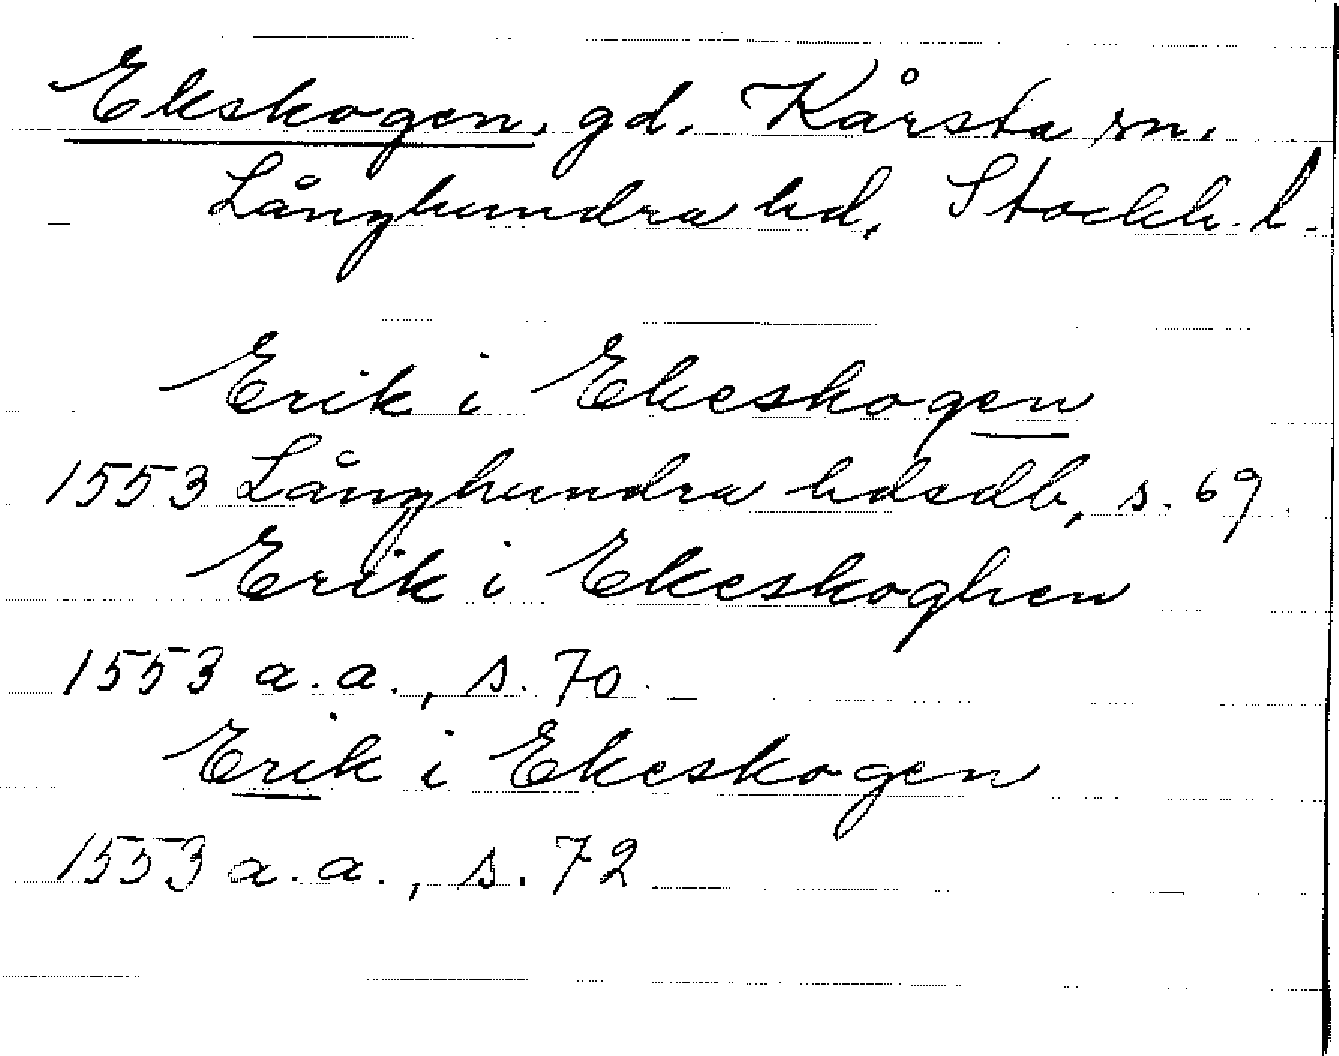 Ekskogen, gd. Kårsta sn.
Långhundra hd, Stockh. l.
Erik i Ekeskogen
1553 Långhundra hdsdb, s. 69
Erik i Ekeskoghen
1553 a.a., s. 70
Erik i Ekeskogen
1553 a.a., s. 72